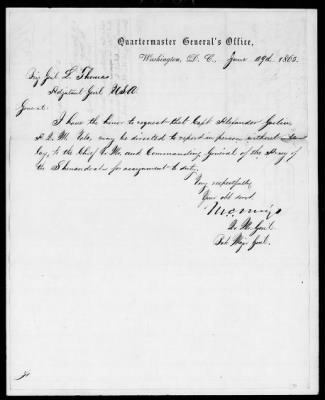 Quartermaster General's Office,
Washington, D. C., June 29d. 1865.
Brig Genl. L. Thomas
Adjutant Genl. U.S.A.
General:
I have the honor to request that Capt Alexander
A. Q. M. Vols, may be directed to report in person without
lay, to the Chief Q. M. and Commanding General of the Army of
the Shenandoah for assignment to duty.
Very respectfully
Your obt servt
M C Meigs
Q. M. Genl.
Bvt. Maj. Genl.